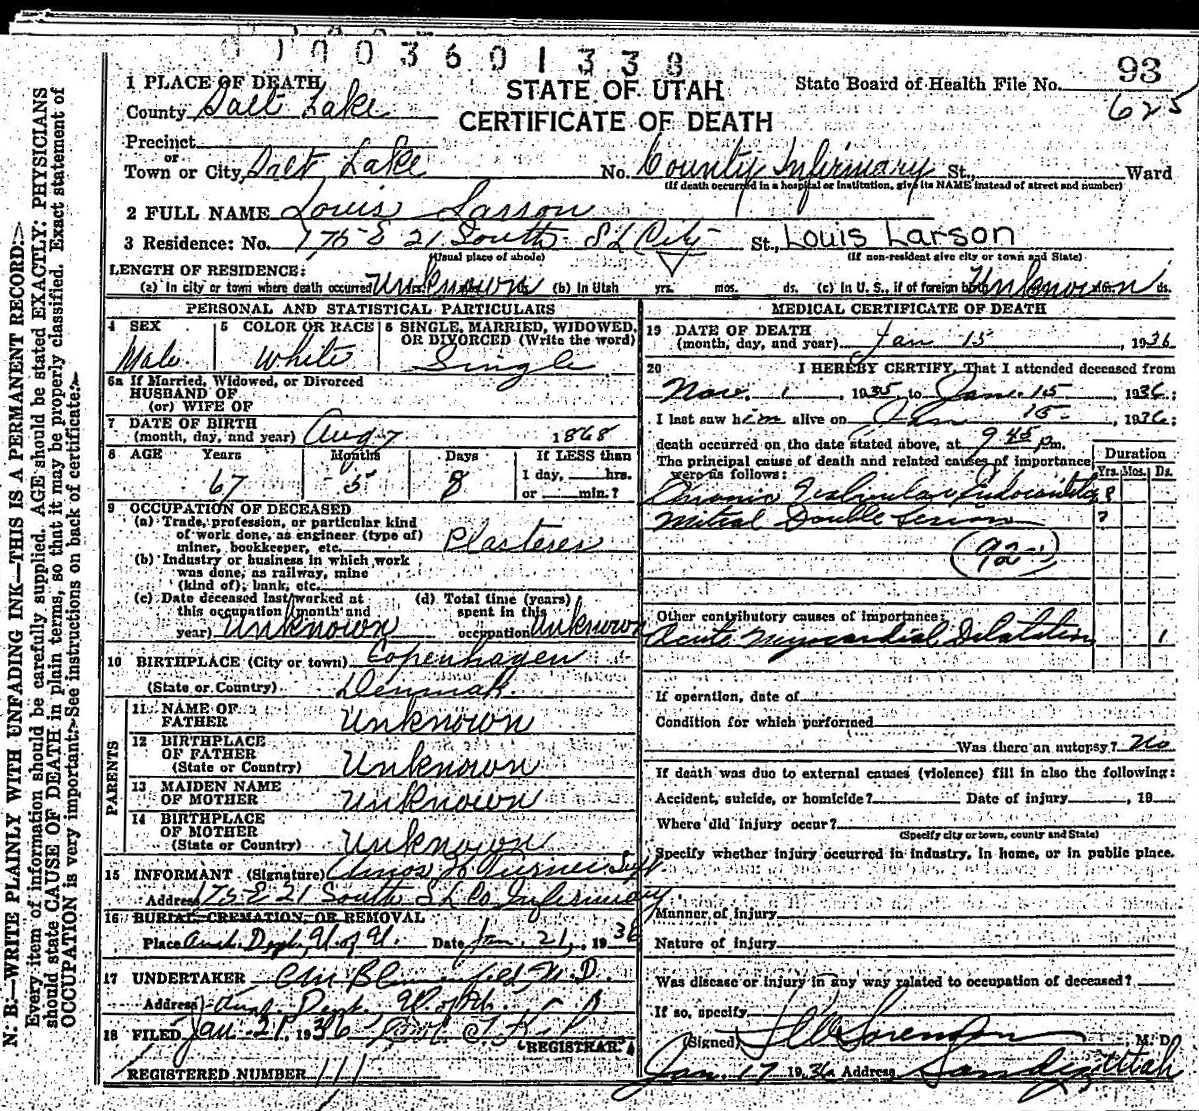 01003601338
1 PLACE OF DEATH
STATE OF UTAH
State Board of Health File No. 93
County Salt Lake
625
CERTIFICATE OF DEATH
Precinct
or
Town or City Salt Lake No. County Infirmary St., Ward
(If death occurred in a hospital or institution, give its NAME instead of street and number)
2 FULL NAME Louis Larson
3 Residence: No. 175 E 21 South S L City St., Louis Larson
(Usual place of abode) (If non-resident give city or town and State)
LENGTH OF RESIDENCE:
(a) In city or town where death occurred Unknown (b) In Utah yrs. mos. ds. (c) In U. S., if of foreign birth Unknown ds.
PERSONAL AND STATISTICAL PARTICULARS
4 SEX Male
5 COLOR OR RACE White
6 SINGLE, MARRIED, WIDOWED, OR DIVORCED (Write the word)
Single
6a If Married, Widowed, or Divorced
HUSBAND OF
(or) WIFE OF
7 DATE OF BIRTH
(month, day, and year) Aug 7 1868
8 AGE Years Months Days If LESS than
67 5 8 1 day, hrs.
or min.?
9 OCCUPATION OF DECEASED
(a) Trade, profession, or particular kind
of work done, as engineer (type of)
miner, bookkeeper, etc. Plasterer
(b) Industry or business in which work
was done, as railway, mine
(kind of); bank, etc.
(c) Date deceased last worked at
this occupation (month and
year) Unknown
(d) Total time (years)
spent in this
occupation Unknown
10 BIRTHPLACE (City or town) Copenhagen
(State or Country) Denmark
PARENTS
11 NAME OF
FATHER Unknown
12 BIRTHPLACE
OF FATHER
(State or Country) Unknown
13 MAIDEN NAME
OF MOTHER Unknown
14 BIRTHPLACE
OF MOTHER
(State or Country) Unknown
15 INFORMANT (Signature) Amos Turner Supt
Address 175 E 21 South S L Co Infirmary
16 BURIAL, CREMATION, OR REMOVAL
Place Anat. Dept. U. of U. Date Jan. 21, 1936
17 UNDERTAKER M.D.
Address Anat. Dept. U. of U.
18 FILED Jan 21, 1936
REGISTRAR
REGISTERED NUMBER 111
MEDICAL CERTIFICATE OF DEATH
19 DATE OF DEATH
(month, day, and year) Jan 15, 1936
20 I HEREBY CERTIFY, That I attended deceased from
Nov. 1, 1935 to Jan. 15, 1936;
I last saw him alive on Jan 15, 1936;
death occurred on the date stated above, at 9 45 pm.
The principal cause of death and related causes of importance
were as follows:
Duration
Yrs. Mos. Ds.
Chronic Valvular Endocarditis ?
Mitral Double Lesion ?
(92-)
Other contributory causes of importance:
Acute Myocardial Dilatation 1
If operation, date of
Condition for which performed
Was there an autopsy? No
If death was due to external causes (violence) fill in also the following:
Accident, suicide, or homicide? Date of injury, 19
Where did injury occur?
(Specify city or town, county and State)
Specify whether injury occurred in industry, in home, or in public place.
Manner of injury
Nature of injury
Was disease or injury in any way related to occupation of deceased?
If so, specify
(Signed) Sorenson, M. D.
Jan. 17 1936 Address Sandy, Utah
N. B.—WRITE PLAINLY WITH UNFADING INK—THIS IS A PERMANENT RECORD.
Every item of information should be carefully supplied. AGE should be stated EXACTLY. PHYSICIANS
should state CAUSE OF DEATH in plain terms, so that it may be properly classified. Exact statement of
OCCUPATION is very important. See instructions on back of certificate.